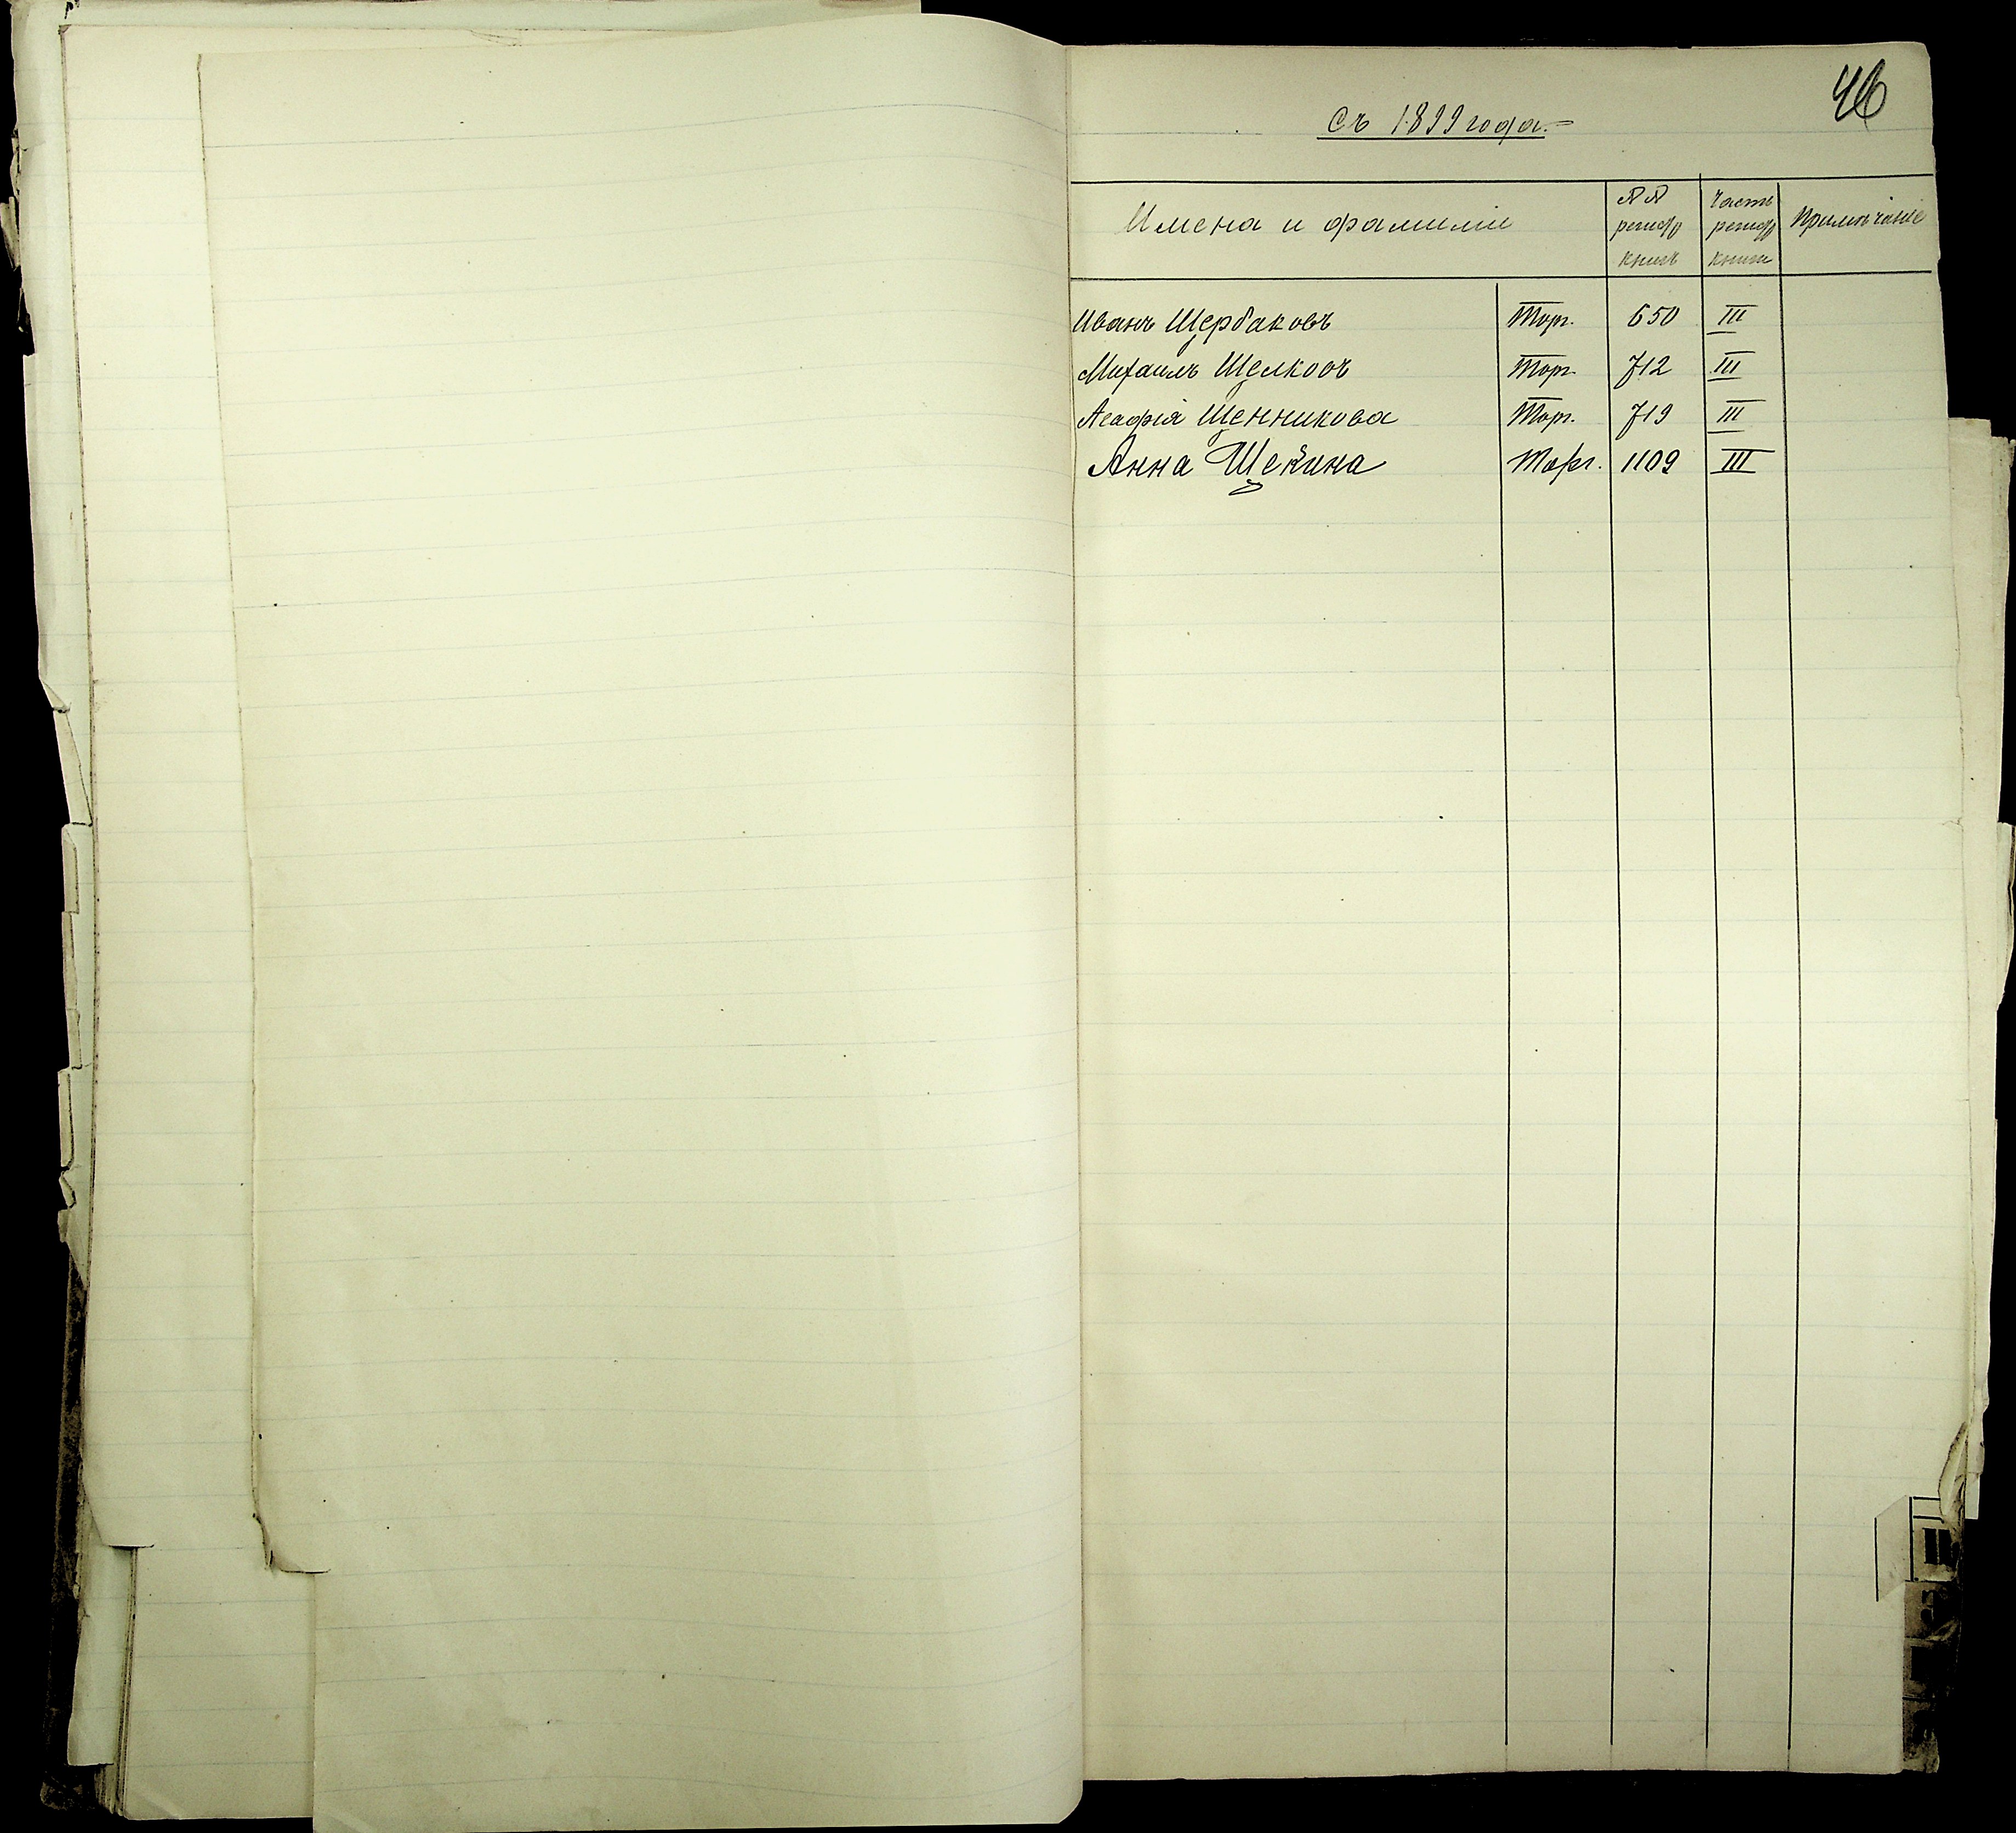 46
Съ 1899 года.
Имена и фамиліи
№№ регистр книгъ
Часть регистр книги
Примѣчаніе
Иванъ Щербаковъ Торг. 650 III
Михаилъ Щелковъ Торг. 712 III
Агафія Щенникова Торг. 719 III
Анна Щекина Торг. 1109 III